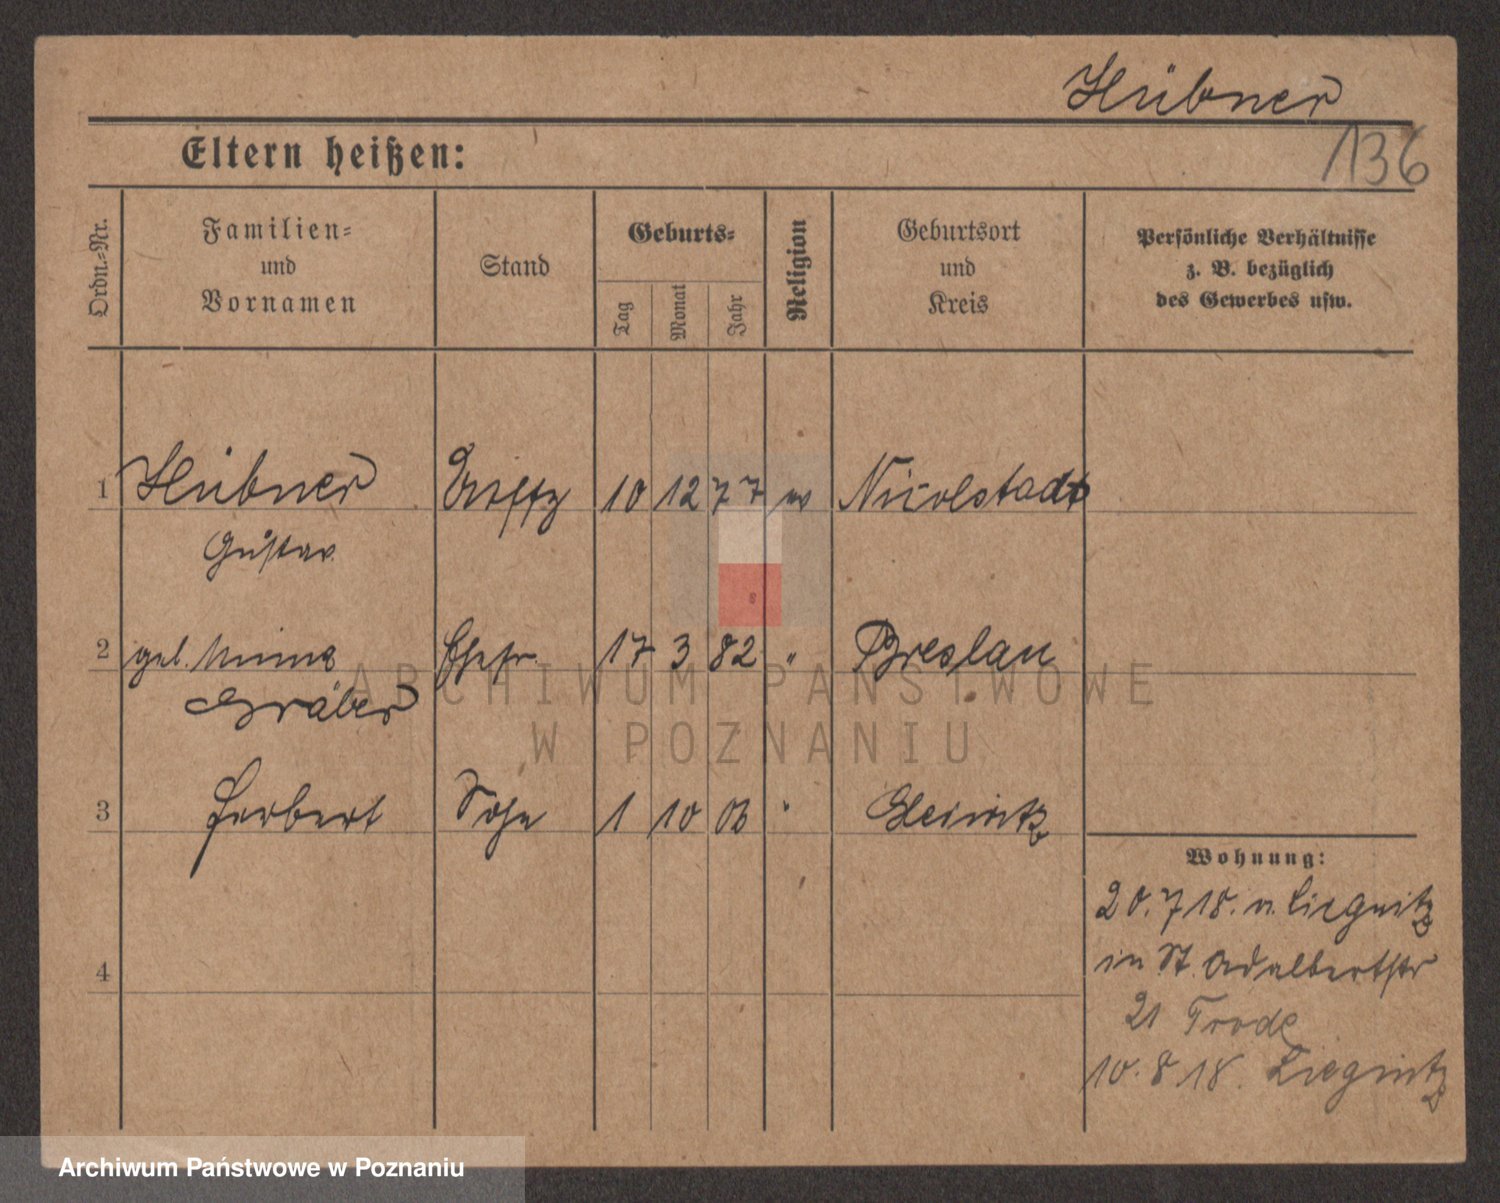 Hübner
136
Eltern heißen:
Ordn.-Nr.
Familien-
und
Vornamen
Stand
Geburts-
Tag
Monat
Jahr
Religion
Geburtsort
und
Kreis
Persönliche Verhältnisse
z. B. bezüglich
des Gewerbes usw.
1 Hübner 10 12 77 ev Nicolstadt
Gustav
2 geb. Minna Ehefr. 17 3 82 " Breslau
Gräber
3 Herbert Sohn 1 10 06 " Gleiwitz
4
Wohnung:
20. 7 18. v. Liegnitz
in St. Adalbertstr
21 Trode
10. 8 18. Liegnitz
ARCHIWUM PAŃSTWOWE
W POZNANIU
Archiwum Państwowe w Poznaniu